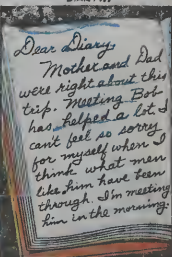 Dear Diary,
Mother and Dad
were right about this
trip. Meeting Bob
has helped a lot. I
can't feel so sorry
for myself when I
think what men
like him have been
through. I'm meeting
him in the morning.